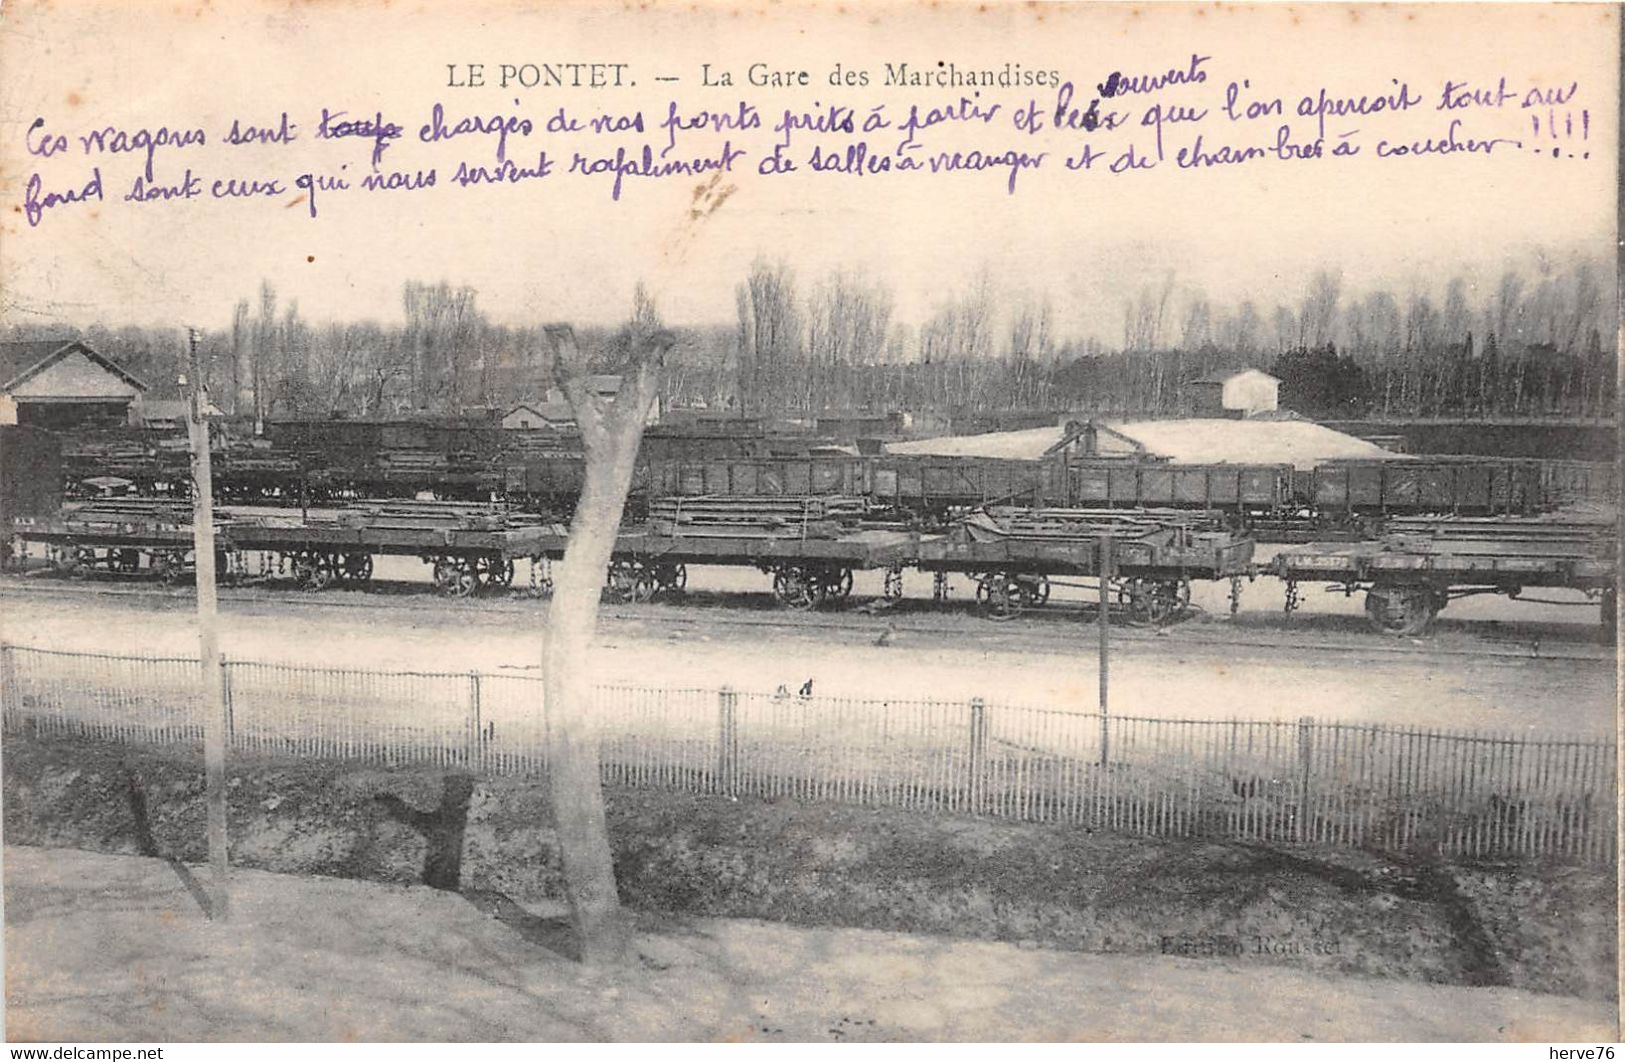 LE PONTET. — La Gare des Marchandises
couverts
Ces wagons sont chargés de nos ponts prets à partir et les que l'on aperçoit tout au
fond sont ceux qui nous servent royalement de salles à manger et de chambres à coucher !!!!
Edition Rousset
herve76